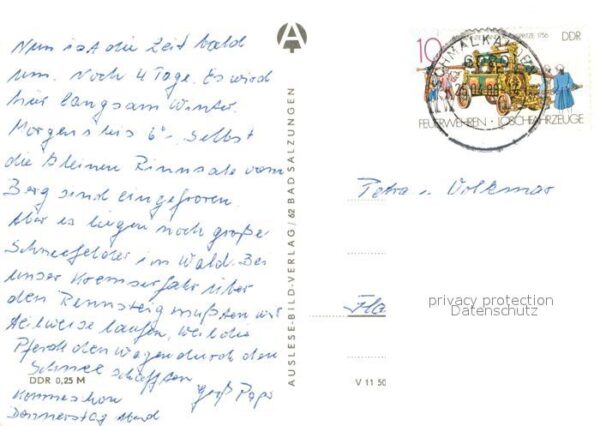 Nun ist die Zeit bald
um. Noch 4 Tage. Es wird
hier langsam Winter.
Morgens bis 6°-. Selbst
die kleinen Rinnsale vom
Berg sind eingefroren.
Aber es liegen noch große
Schneefelder im Wald. Bei
unser Kremserfahrt über
den Rennsteig mußten wir
teilweise laufen, weil die
Pferde den Wagen durch den
Schnee schafften
Gruß Papa
Kommen
Donnerstag Abend
DDR 0,25 M
AUSLESE-BILD-VERLAG/62 BAD SALZUNGEN
A
10
1756
DDR
SCHMALKALDEN
FEUERWEHREN · LÖSCHFAHRZEUGE
Petra u. Volkmar
privacy protection
Datenschutz
V 11 50